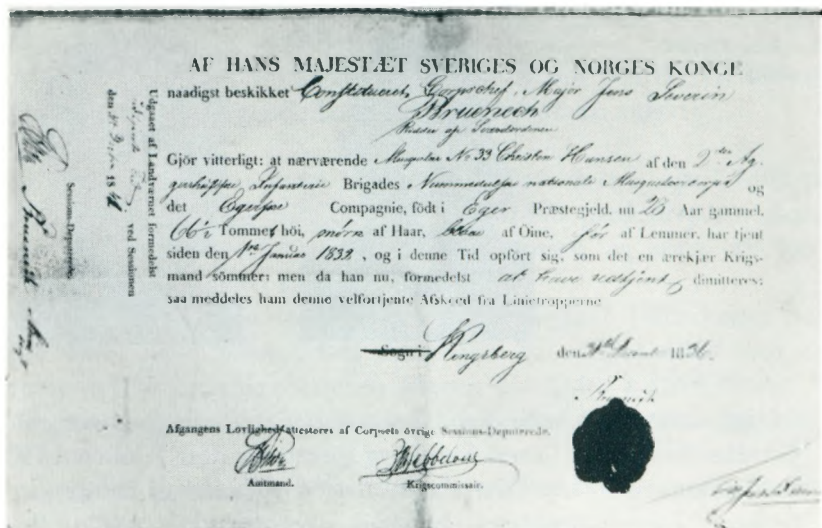 AF HANS MAJESTÆT SVERIGES OG NORGES KONGE
naadigst beskikket Constitueret Corpschef, Major Jens Severin
Bruenech
Ridder af Sværdordenen
Gjör vitterligt: at nærværende Musqueteer No 33 Christen Hansen af den 2den Ag-
gershusiske Infanterie Brigades Nummedalske nationale Musqueteercorps og
det Egerske Compagnie, födt i Eger Præstegjeld, nu 28 Aar gammel,
66½ Tommer höi, mörk af Haar, af Öine, før af Lemmer, har tjent
siden den 1ste Januar 1832, og i denne Tid opfört sig, som det en ærekjær Krigs-
mand sömmer: men da han nu, formedelst at have udtjent, dimitteres:
saa meddeles ham denne velfortjente Afskeed fra Linietropperne
Sogn i Kongsberg den 1836.
Bruenech
Afgangens Lovlighed attesteres af Corpsets övrige Sessions-Deputerede.
Amtmand. Krigscommissair.
Udgaaet af Landværnet formedelst
udtjente ved Sessionen
den 1841
Sessions-Deputerede.